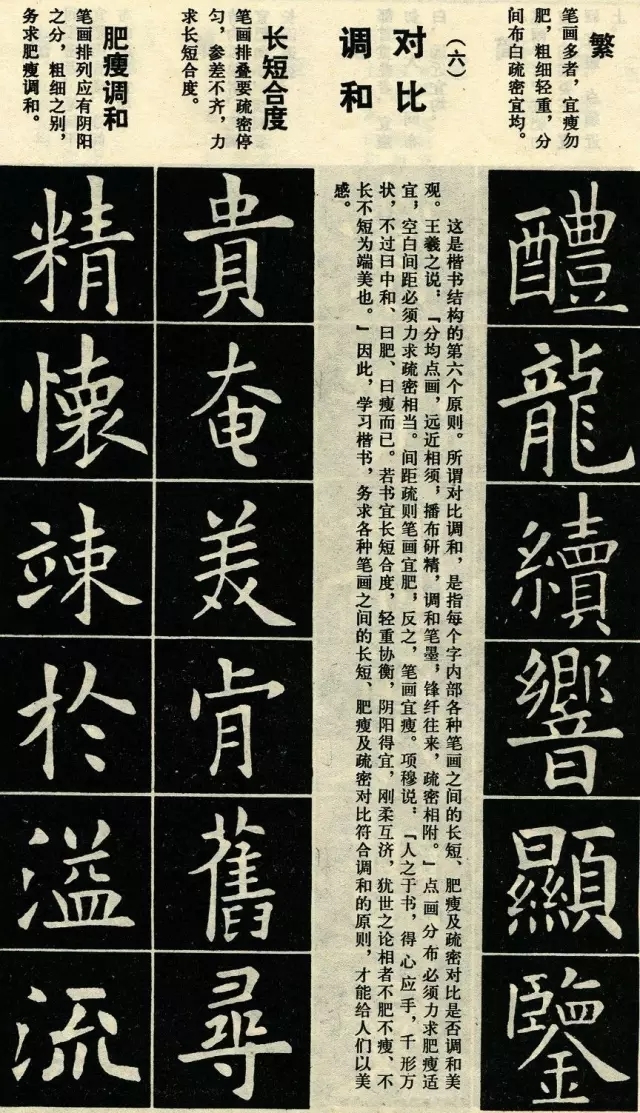 繁
笔画多者，宜瘦勿
肥，粗细轻重，分
间布白疏密宜均。
醴
龍
續
響
顯
鑒
（六）
对比
调和
这是楷书结构的第六个原则。所谓对比调和，是指每个字内部各种笔画之间的长短、肥瘦及疏密对比是否调和美
观。王羲之说：「分均点画，远近相须，播布研精，调和笔墨，锋纤往来，疏密相附。」点画分布必须力求肥瘦适
宜，空白间距必须力求疏密相当。间距疏则笔画宜肥，反之，笔画宜瘦。项穆说：「人之于书，得心应手，千形万
状，不过曰中和、曰肥、曰瘦而已。若书宜长短合度，轻重协衡，阴阳得宜，刚柔互济，犹世之论相者不肥不瘦、不
长不短为端美也。」因此，学习楷书，务求各种笔画之间的长短、肥瘦及疏密对比符合调和的原则，才能给人们以美
感。
长短合度
笔画排叠要疏密停
匀，参差不齐，力
求长短合度。
貴
奄
美
肯
舊
尋
肥瘦调和
笔画排列应有阴阳
之分，粗细之别，
务求肥瘦调和。
精
懷
竦
於
溢
流